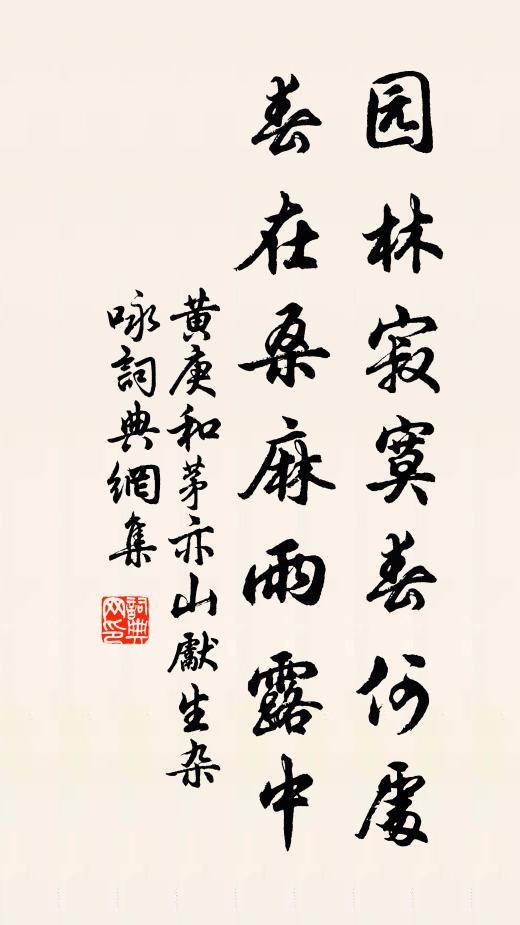 园林寂寞春何處
春在桑麻雨露中
黄庚和茅亦山獻生杂
咏詞典網集
詞典网印